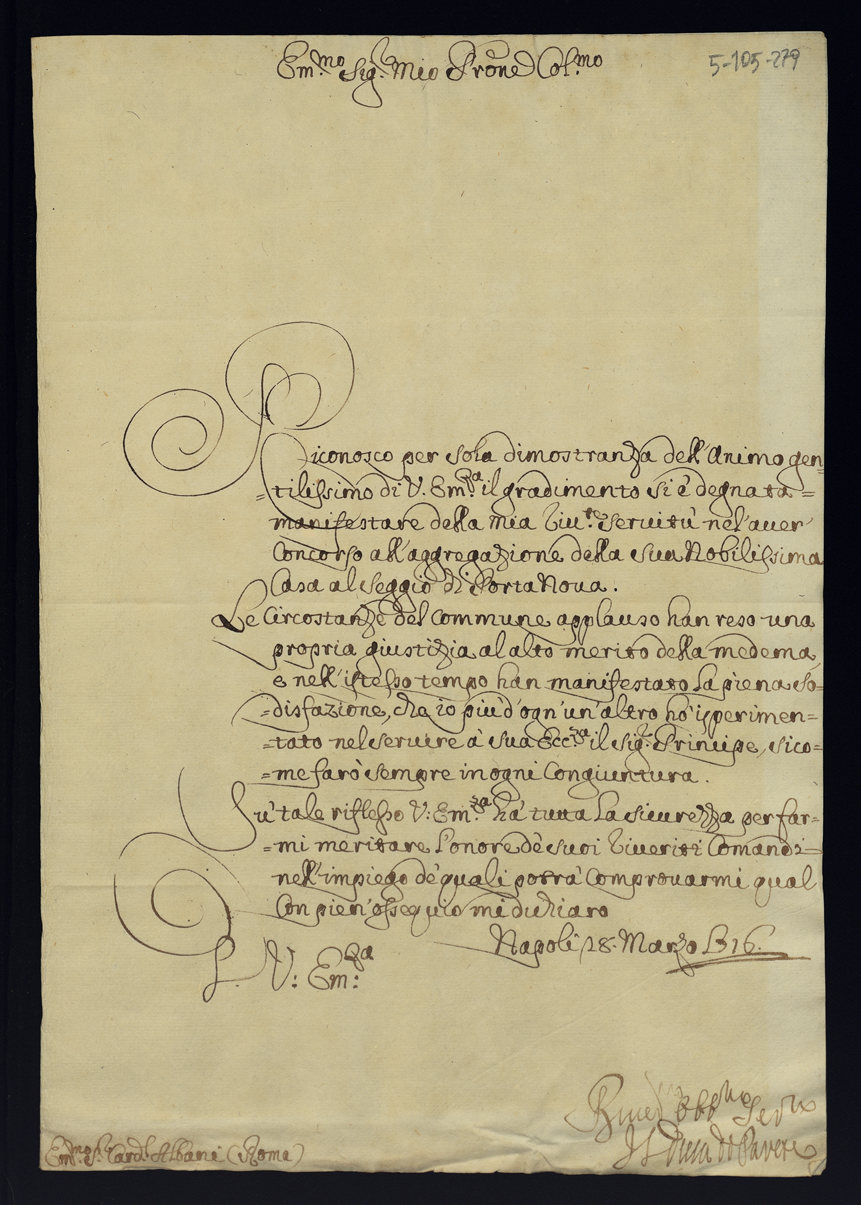 Em.mo Sig.r Mio Prone Col.mo
5-105-279
Riconosco per sola dimostranza dell'Animo gen=
=tilissimo di V. Em.za il gradimento si è degnata=
manifestare della mia riv.te servitù nel'aver
Concorso all'aggregazione della sua Nobilissima
Casa al Seggio di Porta Nova.
Le Circostanze del Commune applauso han reso una
propria giustizia al alto merito della medema,
e nell'istesso tempo han manifestato la piena so=
=disfazione, che io più d'ogn'un'altro hò isperimen=
=tato nel servire à sua Ecc.za il Sig.r Principe, sico=
=me farò sempre in ogni Congiuntura.
Sù tale riflesso V: Em.za hà tutta la sicurezza per far=
=mi meritare l'onore dè suoi riveriti Comandi
nell'impiego dè quali potrà Comprovarmi qual
Con pien'ossequio mi dichiaro
Napoli 28. Marzo
D. V: Em:za
Obb.mo Ser.re
Il Duca di
Em.mo S.r Card.l Albani (Roma)